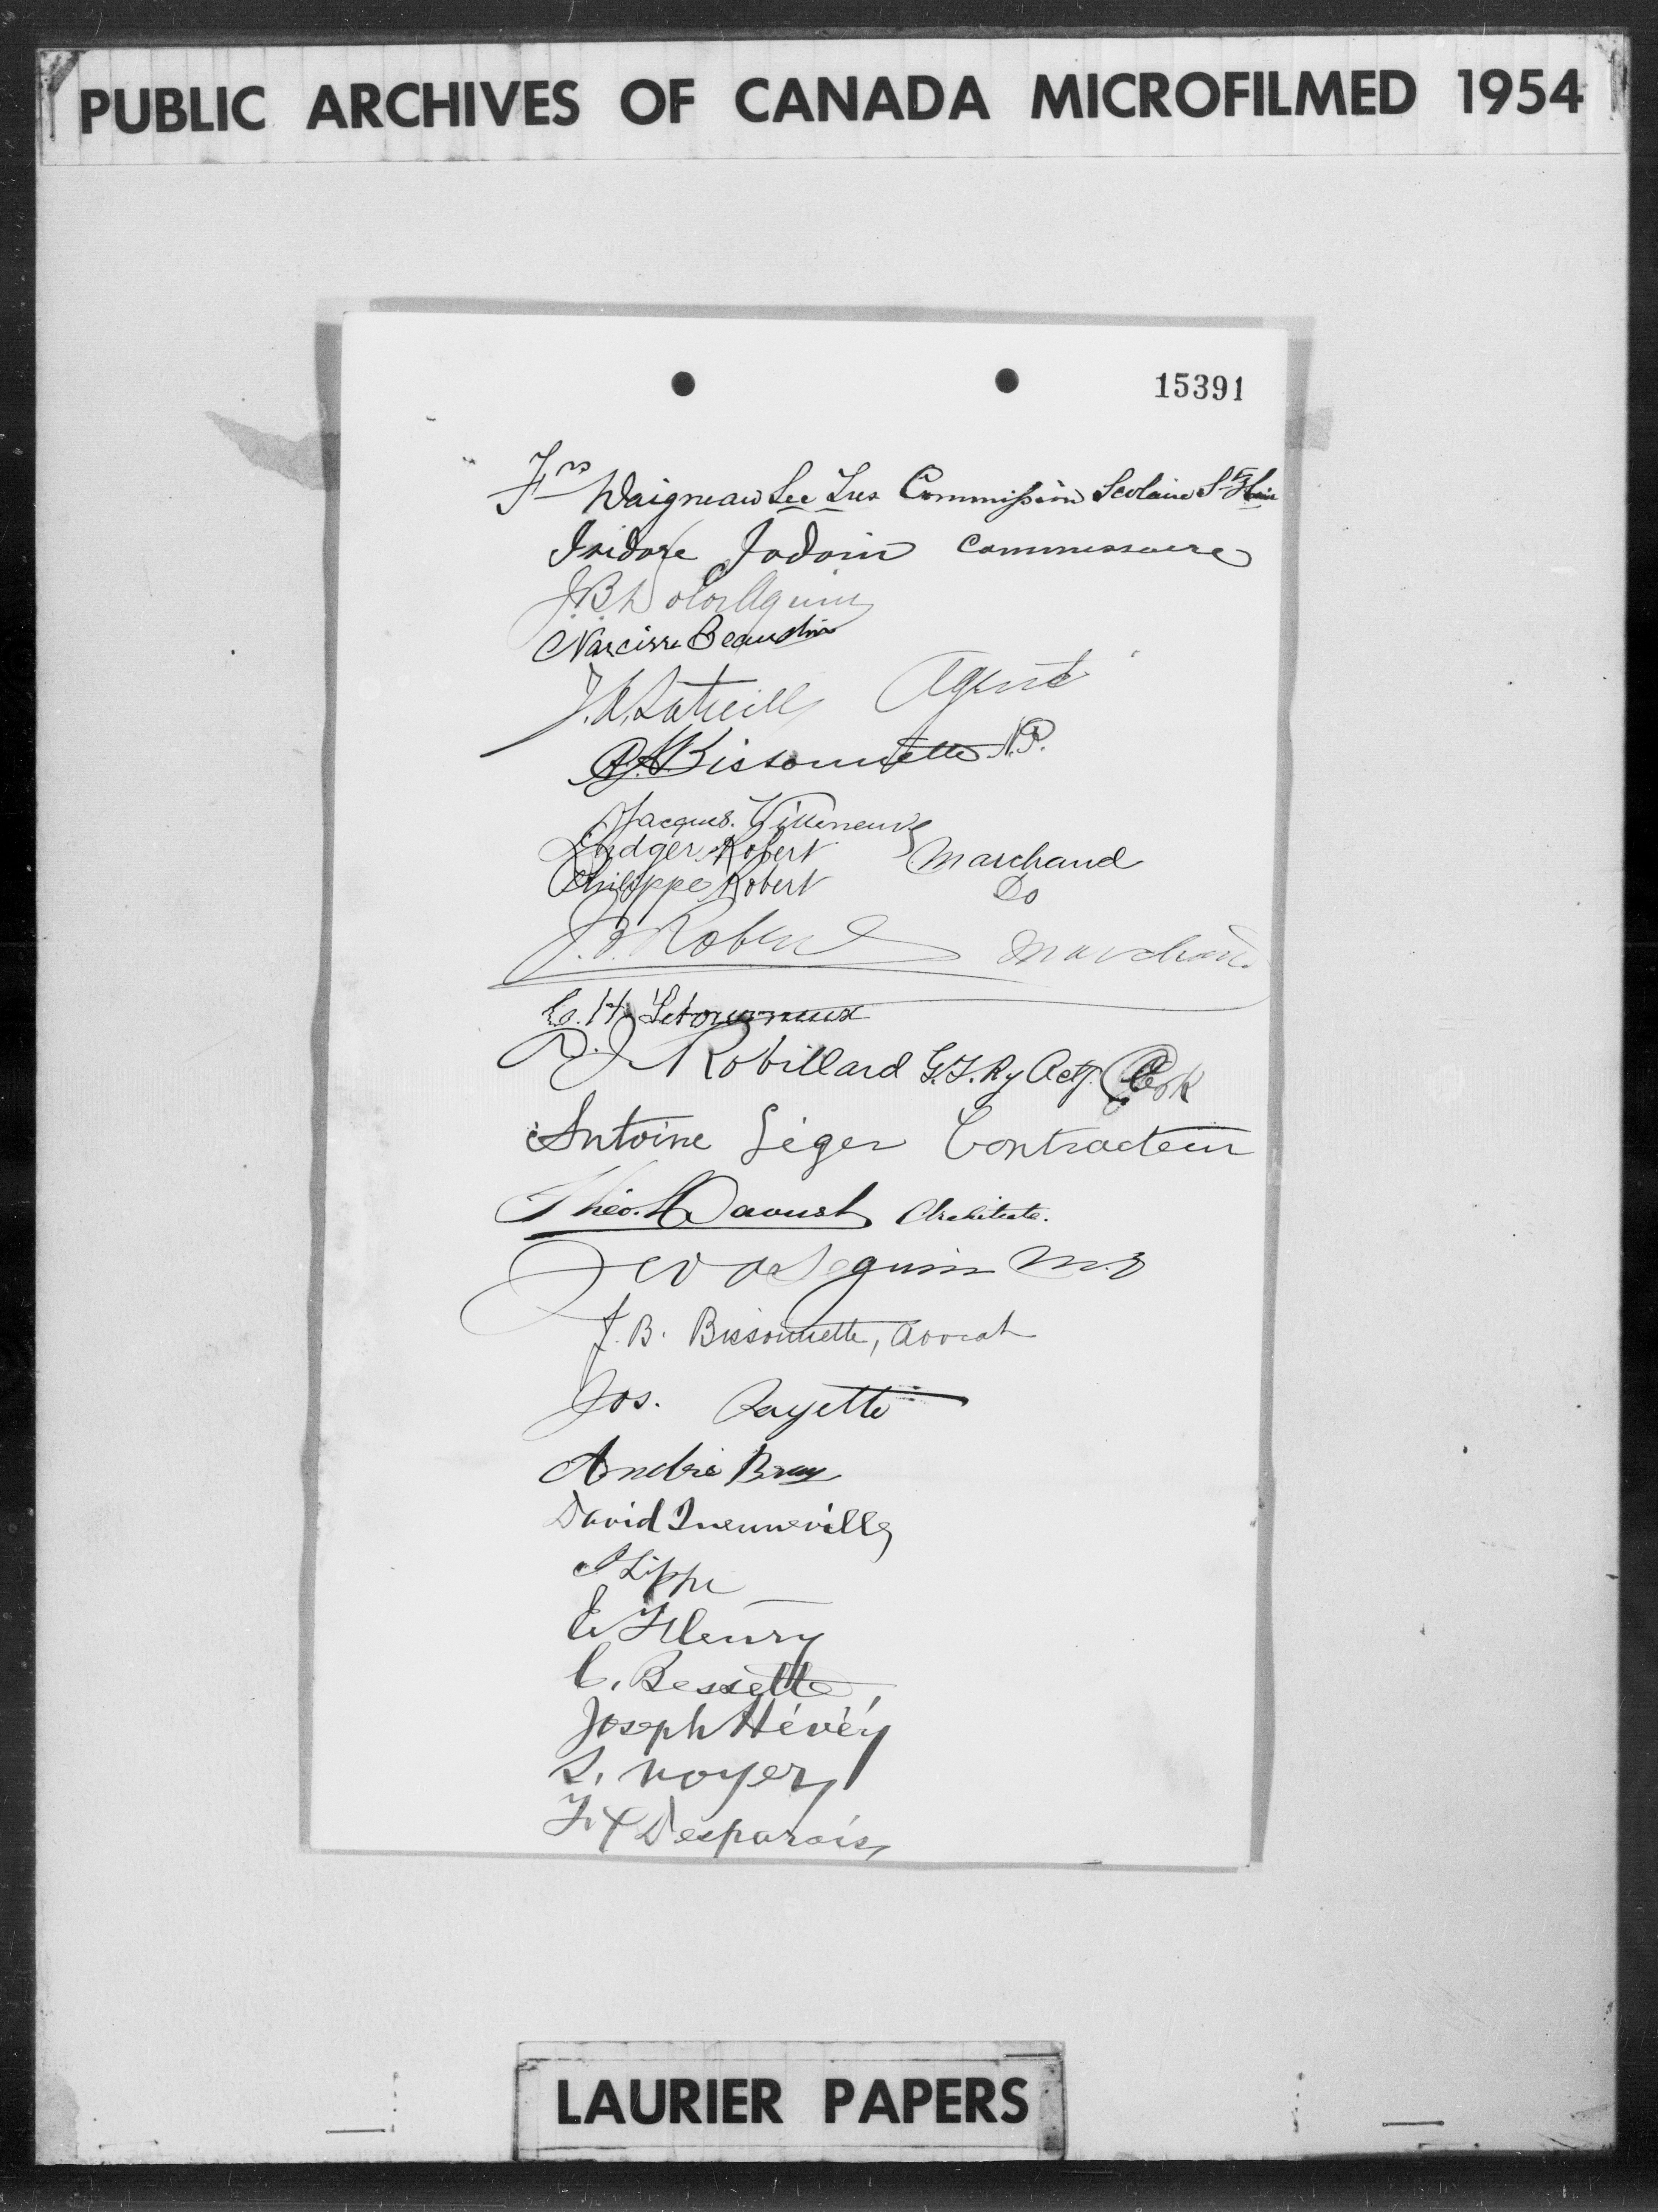 PUBLIC ARCHIVES OF CANADA MICROFILMED 1954
15391
Frs Daigneau Sec Tres Commission Scolaire Ste
Isidore Jodoin Commissaire
J. B. Aquin
Narcisse Beaudin
J. A. Agent
A. Bissonnette N.P.
Jacques Villeneuve
Ludger Robert Marchand
Philippe Robert Do
J. Robert Marchand
C. H. Letourneux
R. J. Robillard G.T. Ry Actg. Clerk
Antoine Léger Contracteur
Théo. Daoust Architecte.
Geo A Seguin M.D
J. B. Bissonnette, avocat
Jos. Payette
André Bray
David Quenneville
A Lippe
E Fleury
C. Bessette
Joseph Hévéy
L. noyer
F. X Desparois
LAURIER PAPERS